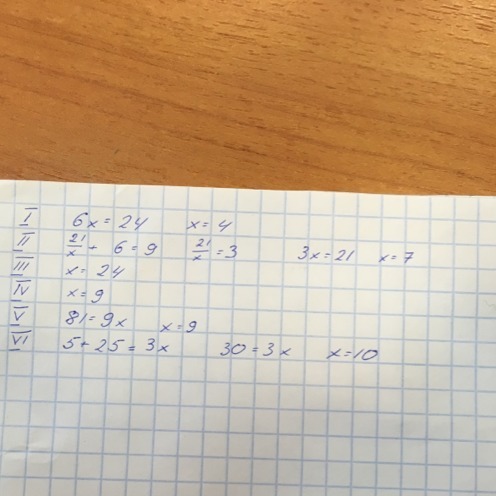 I 6x = 24 x = 4
II 21/x + 6 = 9 21/x = 3 3x = 21 x = 7
III x = 24
IV x = 9
V 81 = 9x x = 9
VI 5 + 25 = 3x 30 = 3x x = 10